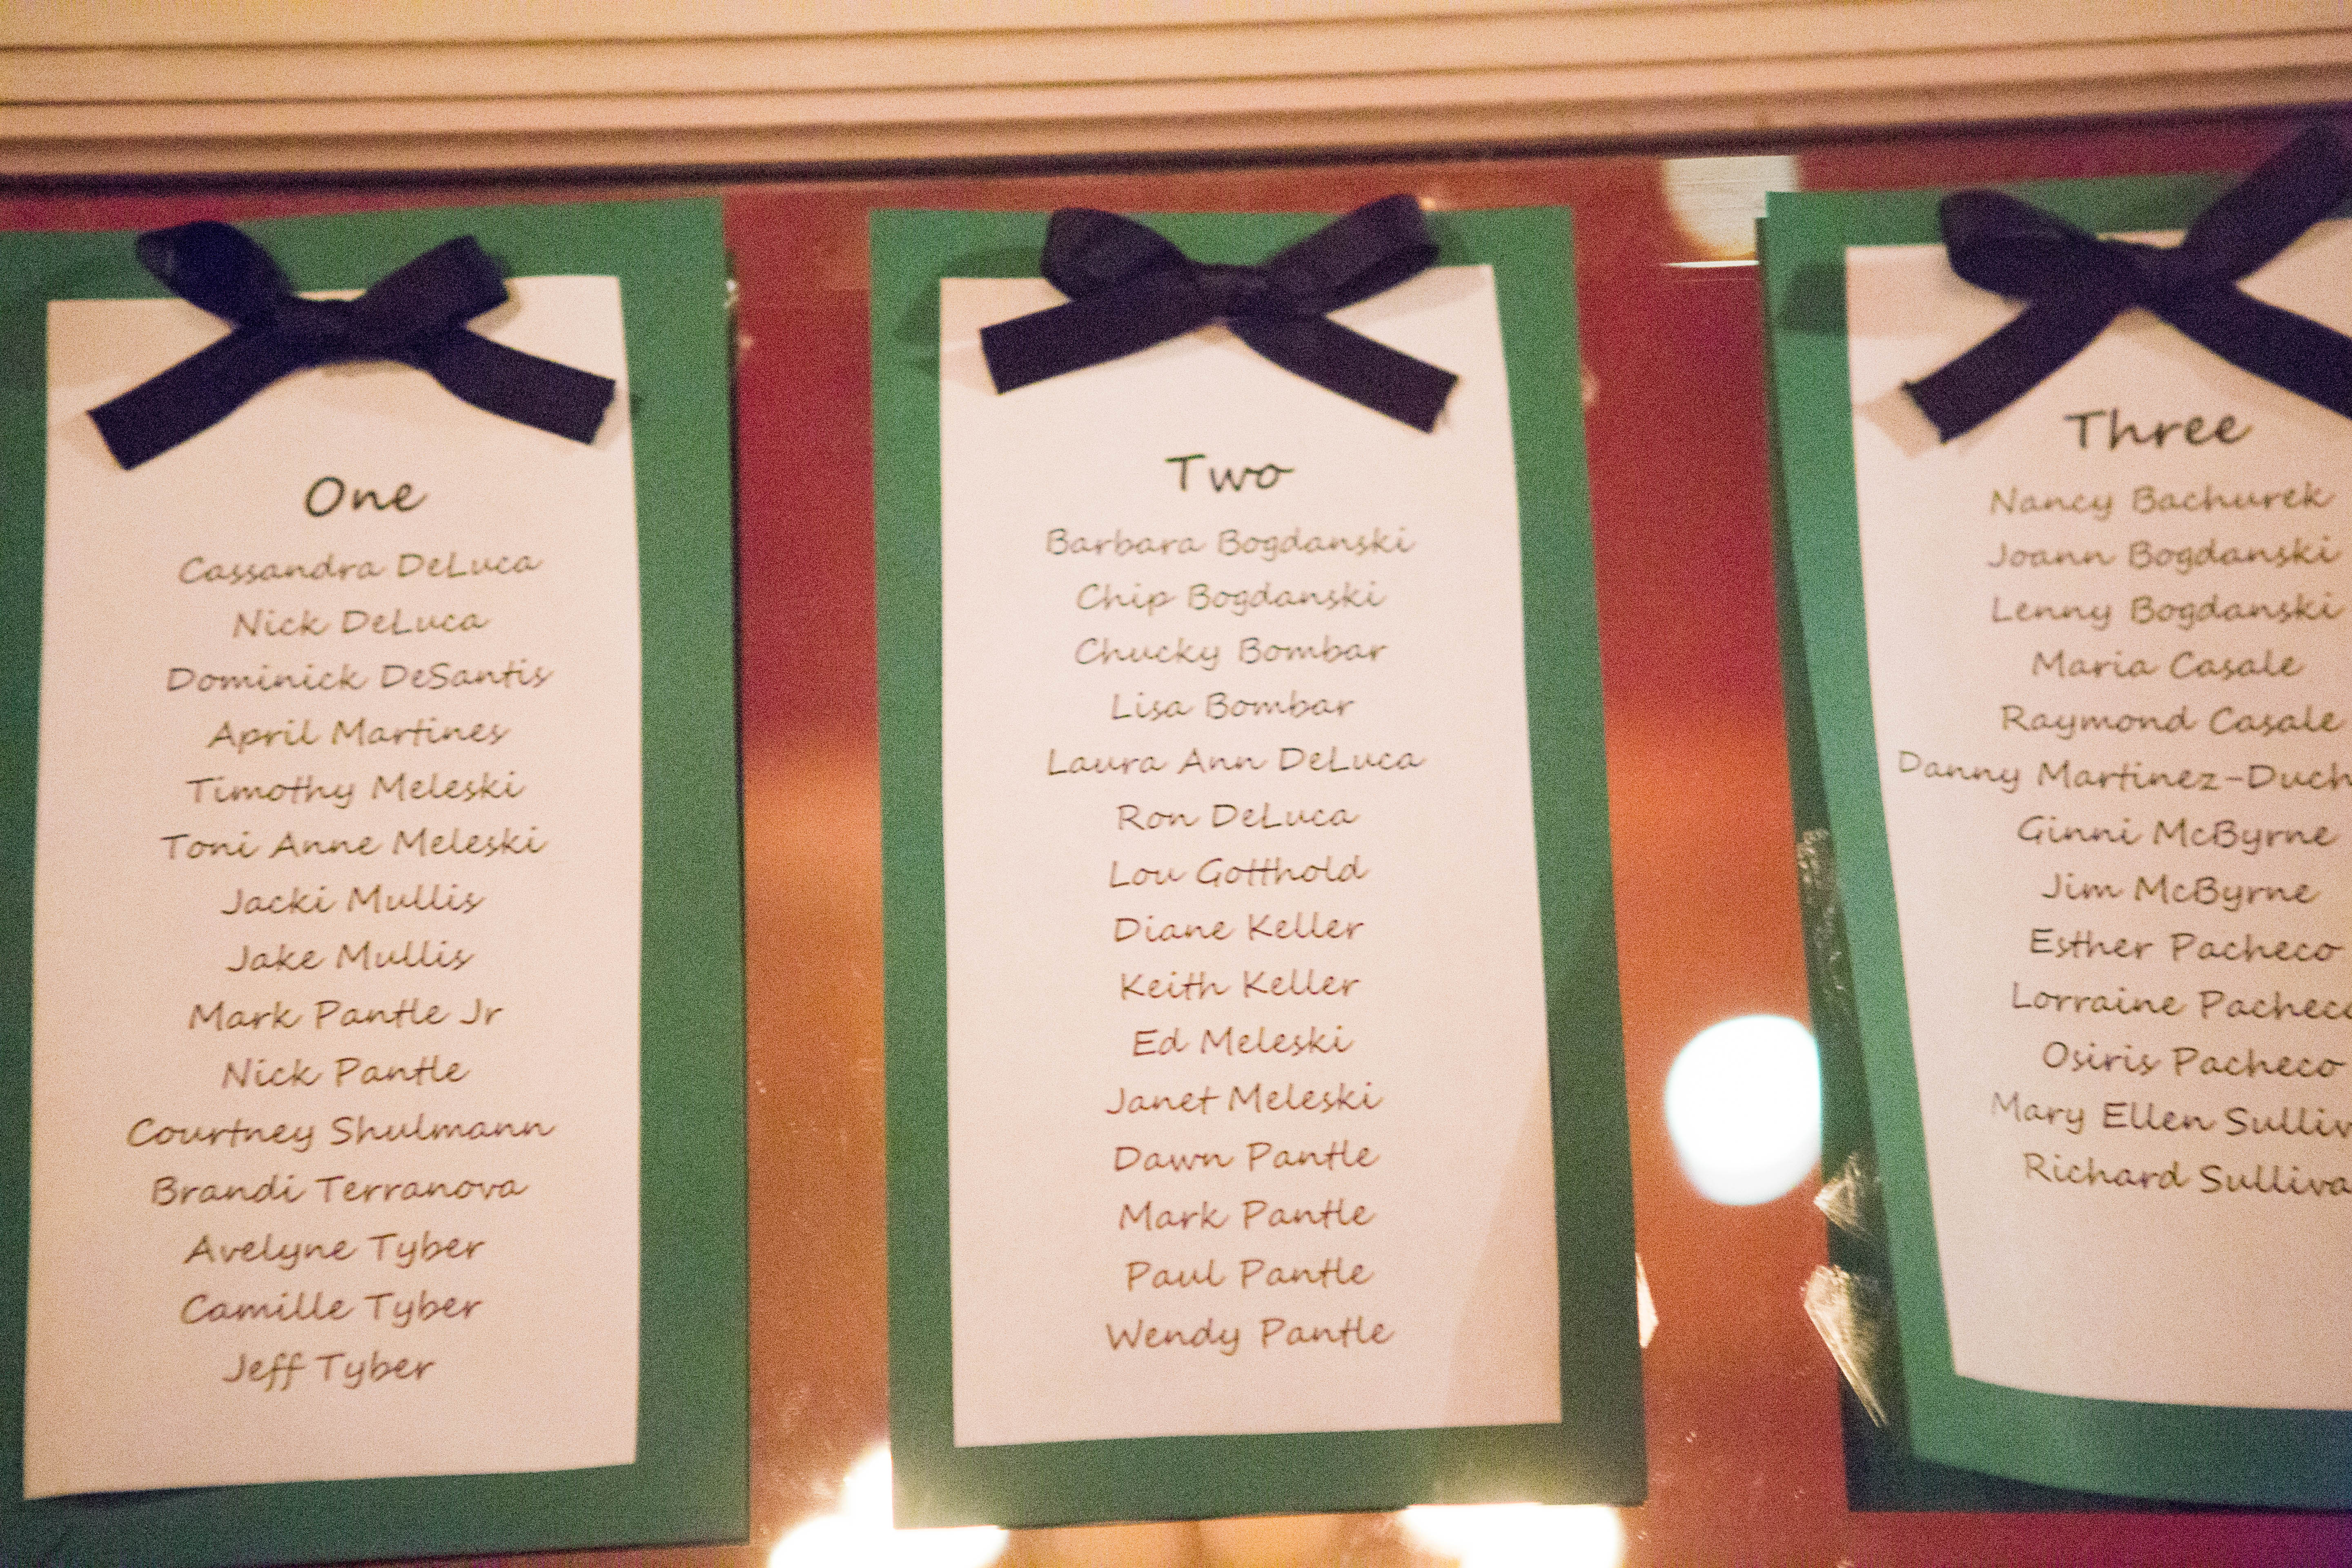 One
Cassandra DeLuca
Nick DeLuca
Dominick DeSantis
April Martines
Timothy Meleski
Toni Anne Meleski
Jacki Mullis
Jake Mullis
Mark Pantle Jr
Nick Pantle
Courtney Shulmann
Brandi Terranova
Avelyne Tyber
Camille Tyber
Jeff Tyber
Two
Barbara Bogdanski
Chip Bogdanski
Chucky Bombar
Lisa Bombar
Laura Ann DeLuca
Ron DeLuca
Lou Gotthold
Diane Keller
Keith Keller
Ed Meleski
Janet Meleski
Dawn Pantle
Mark Pantle
Paul Pantle
Wendy Pantle
Three
Nancy Bachurek
Joann Bogdanski
Lenny Bogdanski
Maria Casale
Raymond Casale
Danny
Ginni McByrne
Jim McByrne
Esther Pacheco
Lorraine Pacheco
Osiris Pacheco
Mary Ellen
Richard